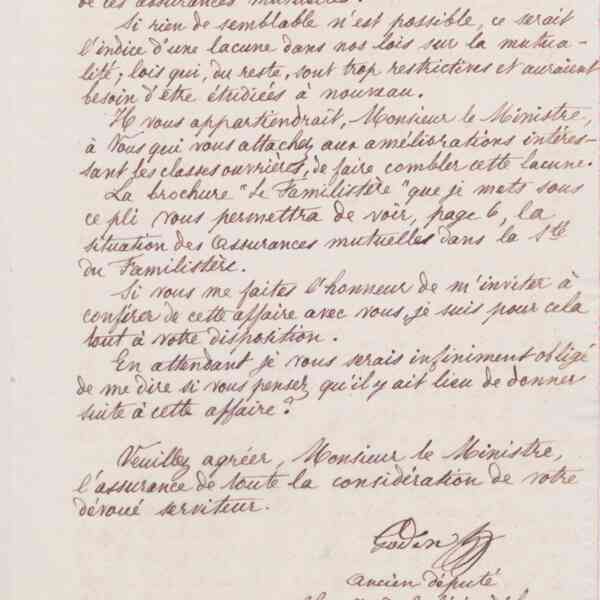 de ces assurances mutuelles.
Si rien de semblable n'est possible, ce serait
l'indice d'une lacune dans nos lois sur la mutua-
lité; lois qui, du reste, sont trop restrictives et auraient
besoin d'être étudiées à nouveau.
Il vous appartiendrait, Monsieur le Ministre,
à Vous qui vous attachez aux améliorations intéres-
sant les classes ouvrières, de faire combler cette lacune.
La brochure "Le Familistère" que je mets sous
ce pli vous permettra de voir, page 6, la
situation des Assurances mutuelles dans la Sté
du Familistère.
Si vous me faites l'honneur de m'inviter à
conférer de cette affaire avec vous, je suis pour cela
tout à votre disposition.
En attendant je vous serais infiniment obligé
de me dire si vous pensez qu'il y ait lieu de donner
suite à cette affaire?
Veuillez agréer, Monsieur le Ministre,
l'assurance de toute la considération de votre
dévoué serviteur.
Godin
ancien député